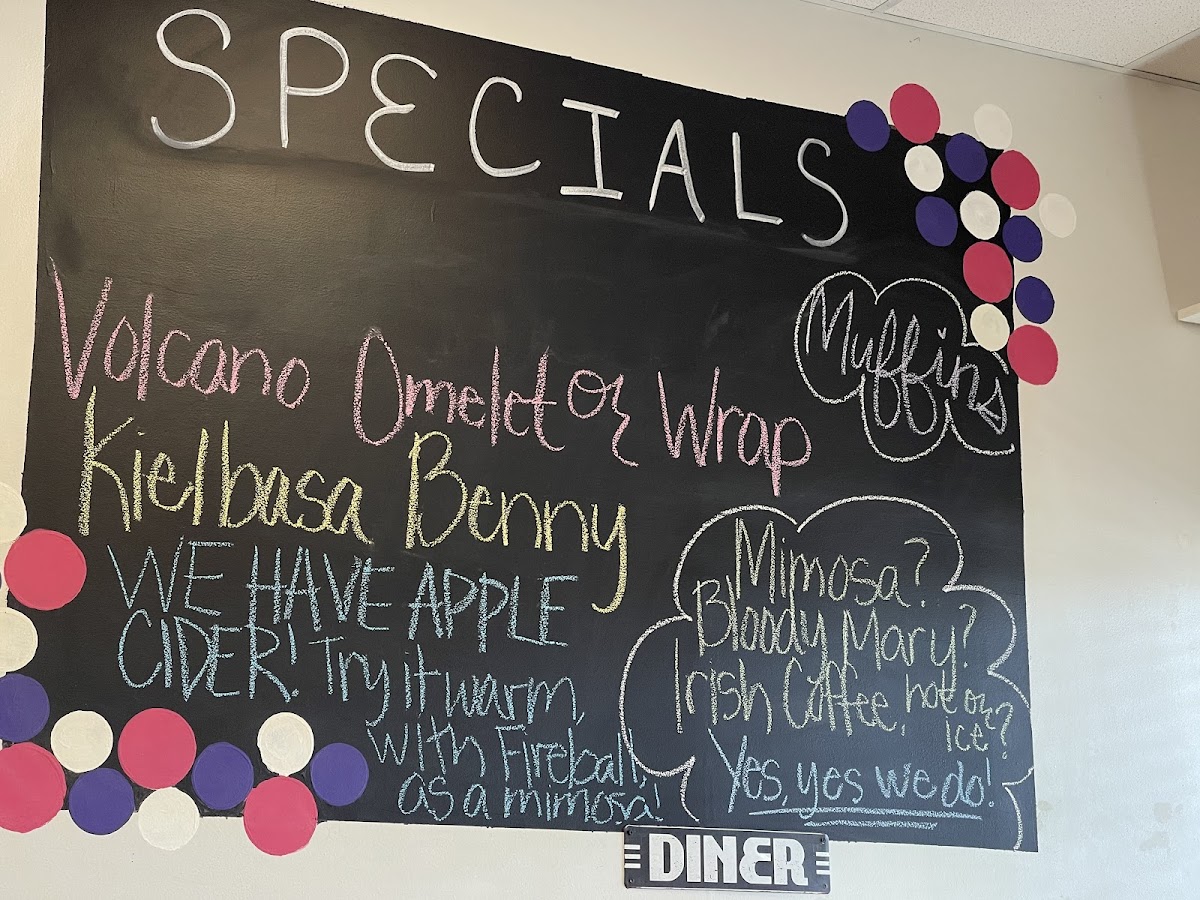 SPECIALS
Muffins
Volcano Omelet or Wrap
Kielbasa Benny
WE HAVE APPLE
CIDER! Try it warm,
with Fireball,
as a mimosa!
Mimosa?
Bloody Mary?
Irish Coffee, hot or
ice?
Yes, yes we do!
DINER